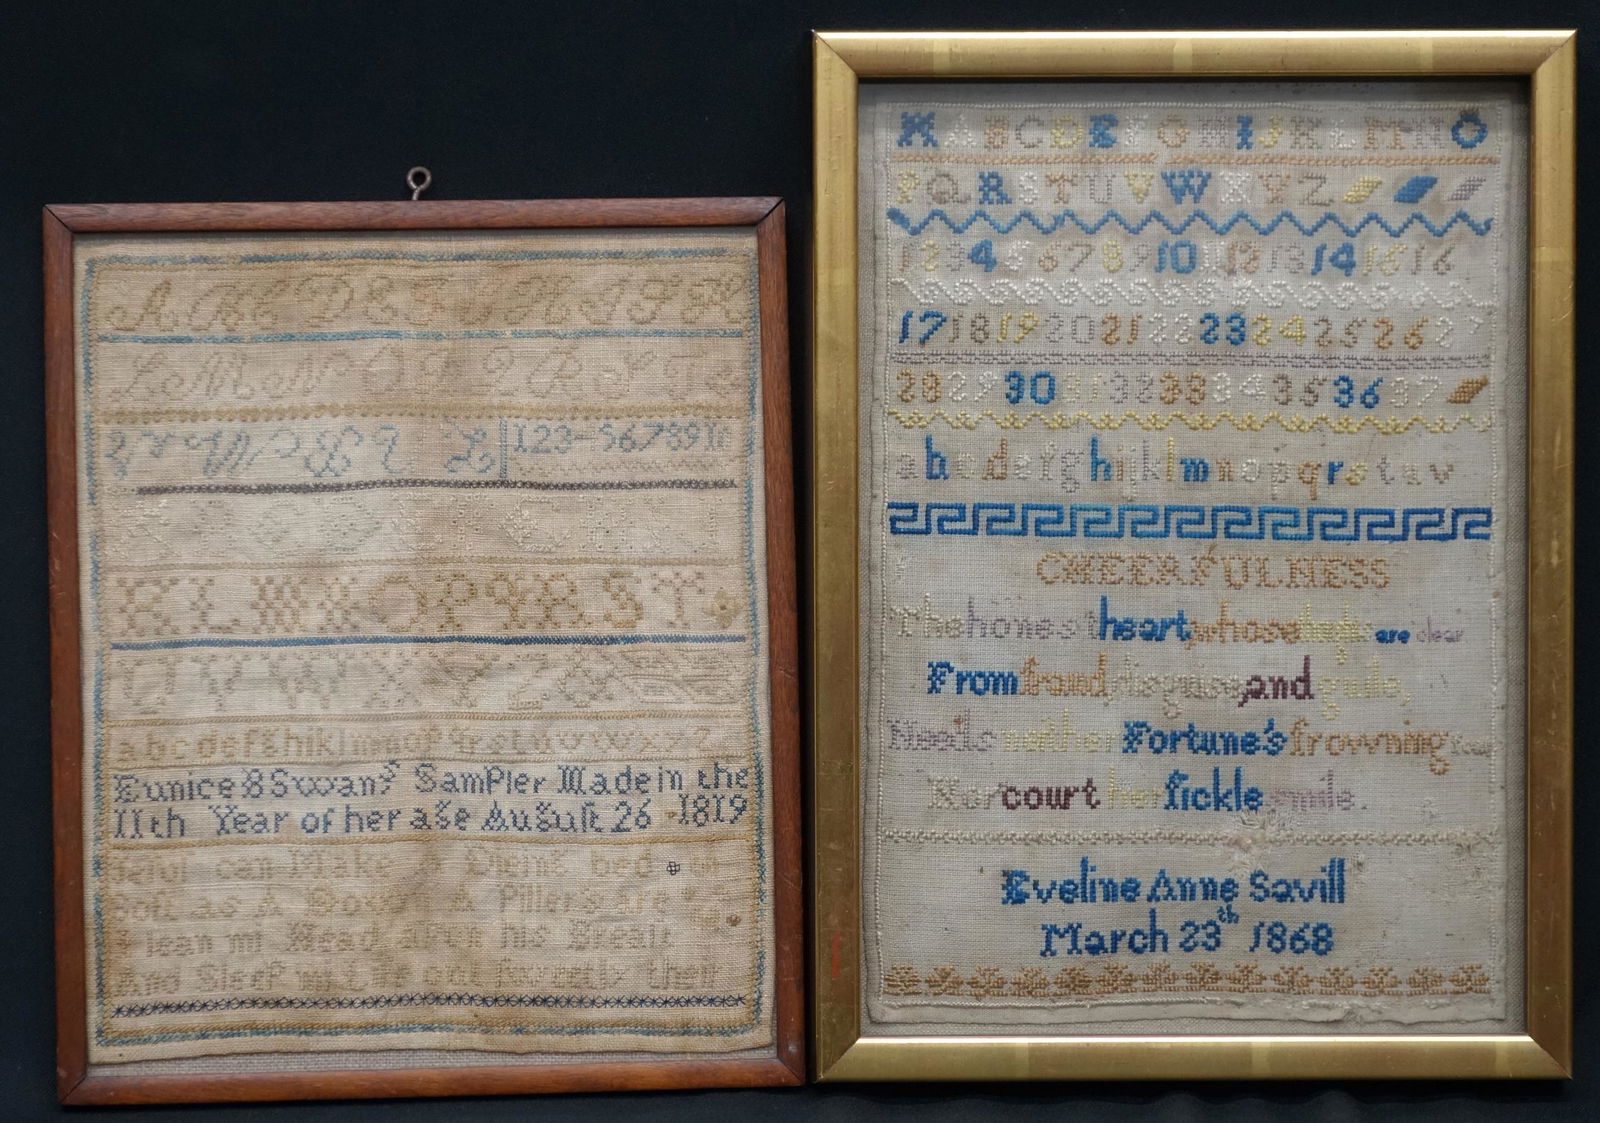 A B C D E F G H I J K
L M N O P Q R S T U
123-56789
K L M N O P Q R S T
U V W X Y Z &
a b c d e f g h i k l m n o p q r s t u v w x y z
Eunice 8 Swans Sampler Made in the
11th Year of her age Auguſt 26 1819
can Make A Dieing bed
Soft as A Piller's are
I lean mi Head his Breaſt
And Sleep mi Life out sweetly their
A B C D E F G H I J K L M N O
P Q R S T U V W X Y Z
1 2 3 4 5 6 7 8 9 10 11 12 13 14 15 16
17 18 19 20 21 22 23 24 25 26 27
28 29 30 31 32 33 34 35 36 37
a b c d e f g h i j k l m n o p q r s t u v
CHEERFULNESS
The honest heart, whose are clear
From fraud, disguise, and guile,
Needs neither Fortune's frowning
Nor court her fickle smile.
Eveline Anne Savill
March 23th 1868